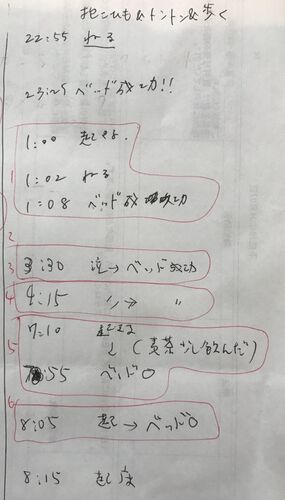 抱っこひも&トントン&歩く
22:55 ねる
23:25 ベッド成功!!
1:00 起きる.
1
1:02 ねる
1:08 ベッド成功
2
3 3:30 泣→ベッド成功
4 4:15 〃→ 〃
7:10 起きる
5 ↓(麦茶少し飲んだ)
7:55 ベッド〇
6
8:05 起→ベッド〇
8:15 起床